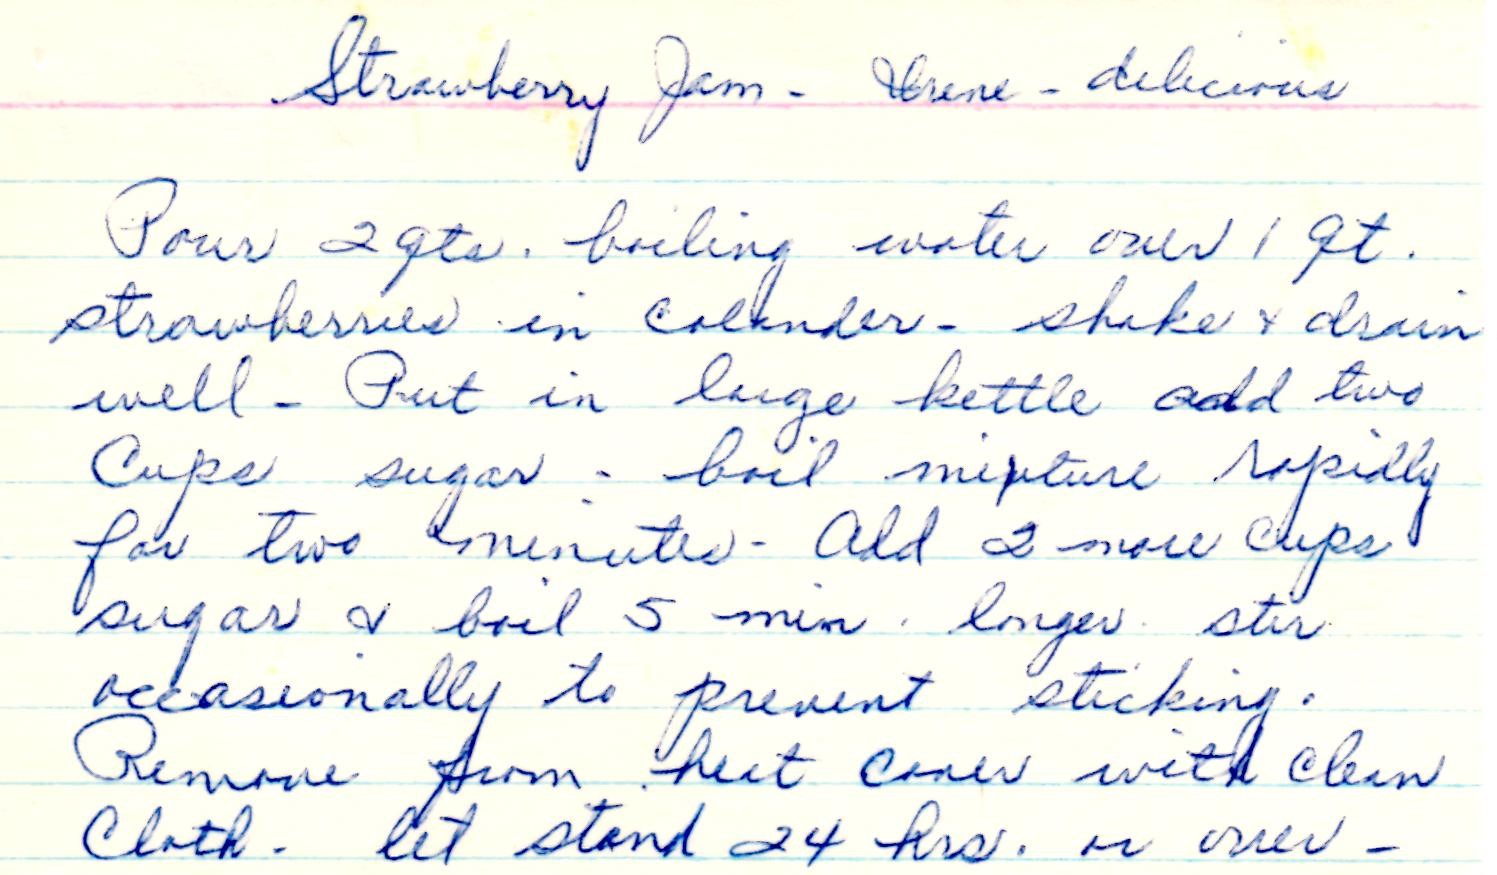 Strawberry Jam - Irene - delicious
Pour 2 qts. boiling water over 1 qt.
strawberries in colander - shake & drain
well - Put in large kettle add two
Cups sugar - boil mixture rapidly
for two minutes - Add 2 more cups
sugar & boil 5 min. longer. stir
occasionally to prevent sticking.
Remove from heat cover with clean
Cloth - let stand 24 hrs. or over -